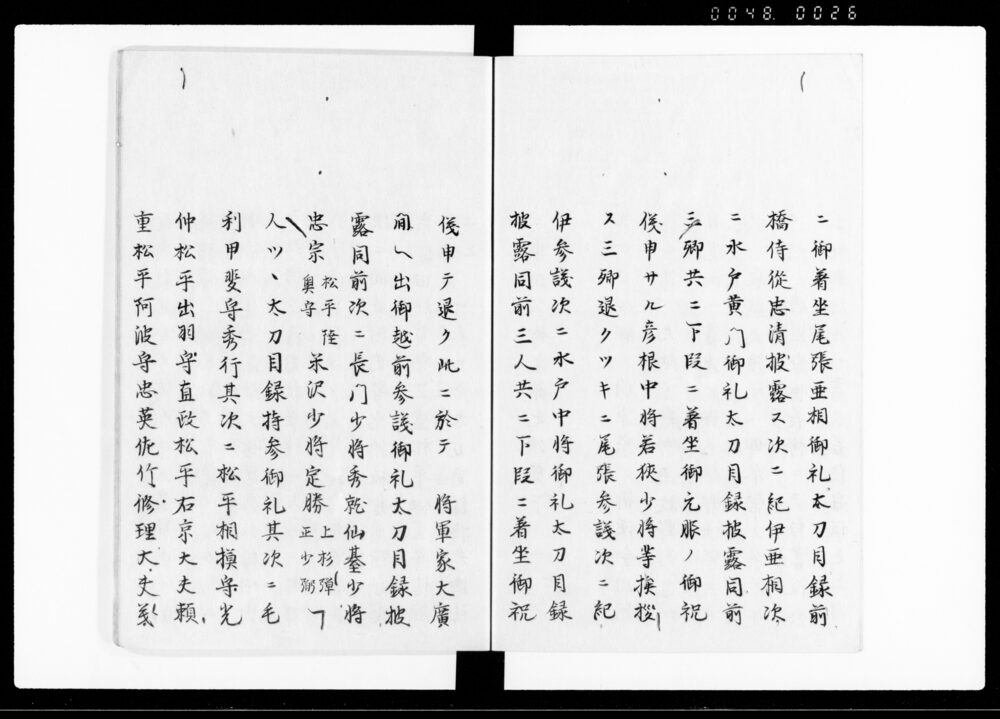 0048. 0026
ニ御著坐尾張亜相御礼太刀目録前
橋侍従忠清披露ス次ニ紀伊亜相次
ニ水戸黄門御礼太刀目録披露同前
三卿共ニ下段ニ着坐御元服ノ御祝
儀申サル彦根中将若狭少将等挨拶
ス三卿退クツキニ尾張参議次ニ紀
伊参議次ニ水戸中将御礼太刀目録
披露同前三人共ニ下段ニ著坐御祝
儀申テ退ク此ニ於テ 将軍家大廣
間ヘ出御越前参議御礼太刀目録披
露同前次ニ長門少将秀就仙臺少将
忠宗 松平陸奥守 米沢少将定勝 上杉弾正少弼 一
人ツヽ太刀目録持参御礼其次ニ毛
利甲斐守秀行其次ニ松平相摸守光
仲松平出羽守直政松平右京大夫頼
重松平阿波守忠英佐竹修理大夫義